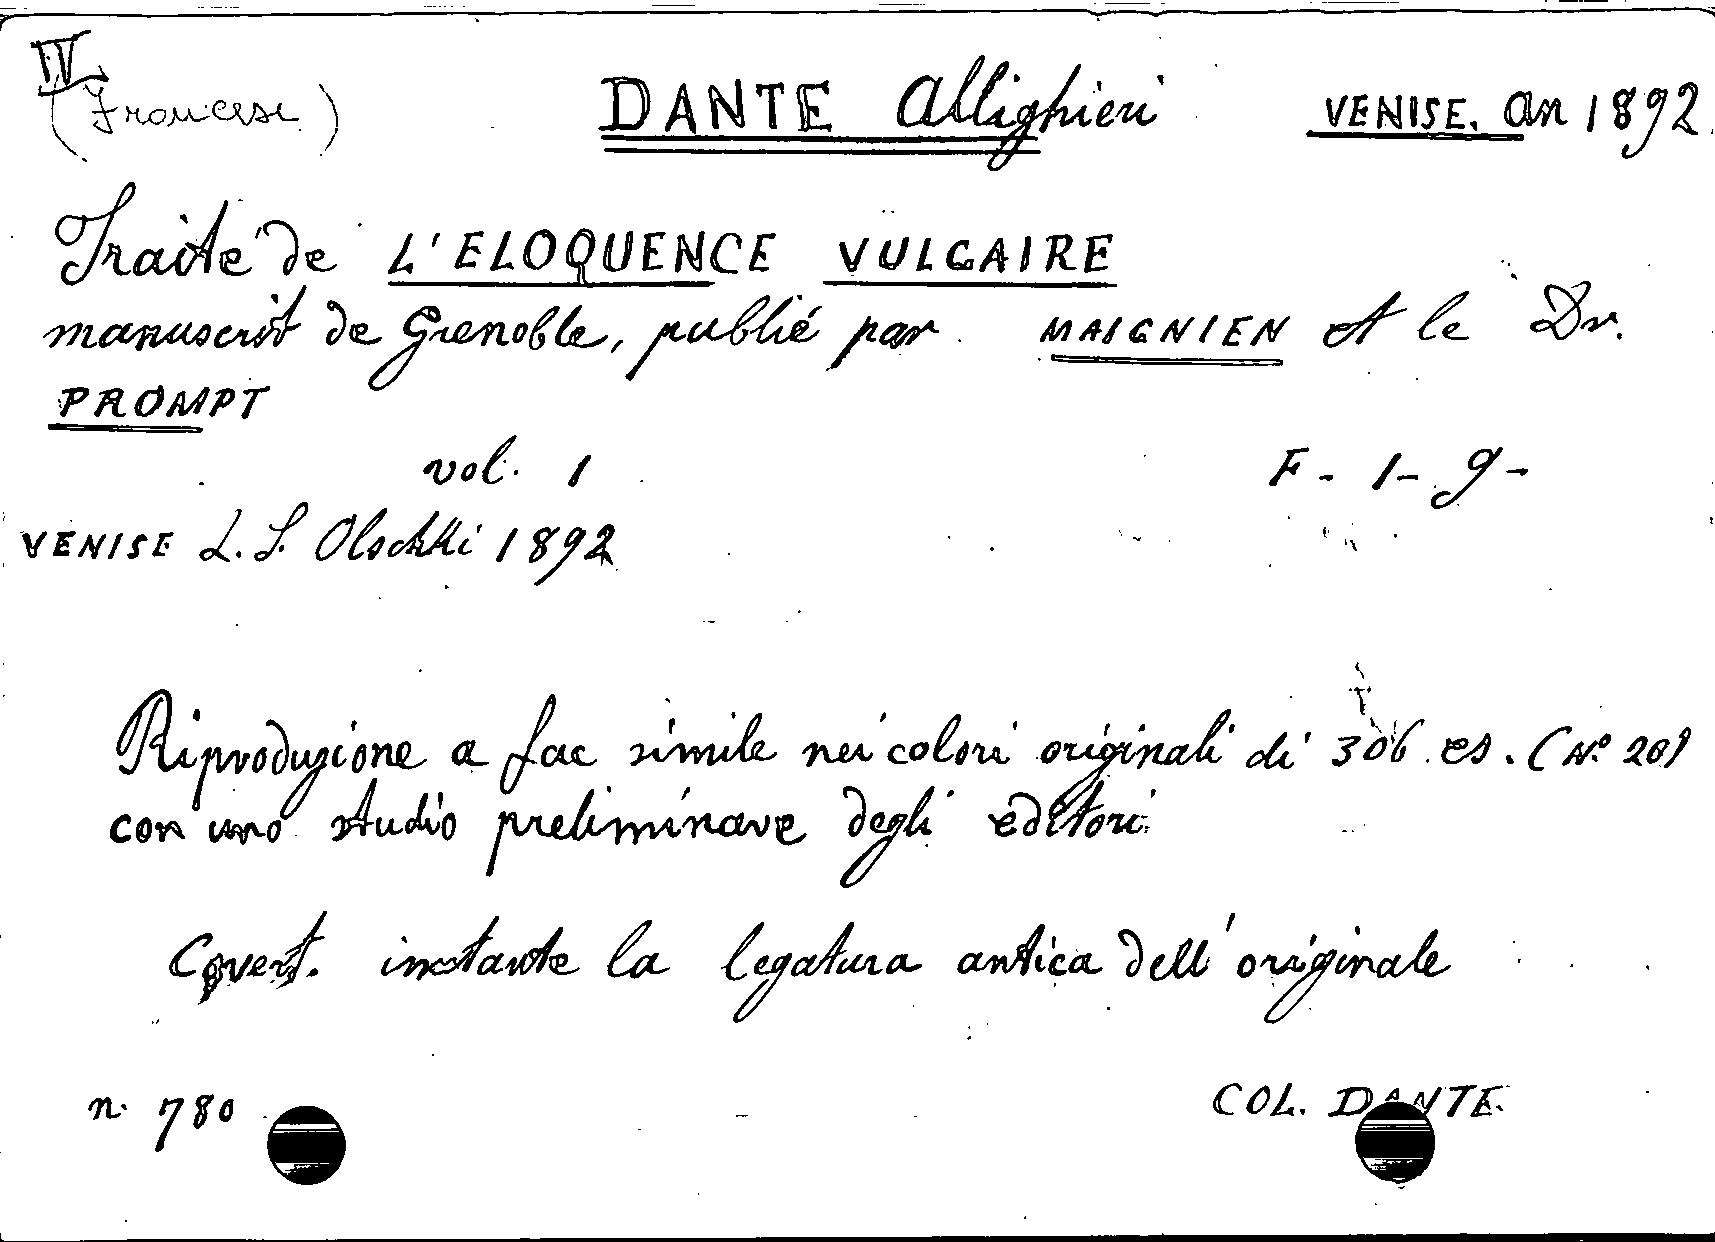 IV
(Francese) DANTE Allighieri VENISE. an 1892
Traité de L'ELOQUENCE VULGAIRE
manuscrit de Grenoble, publié par MAIGNIEN et le Dr.
PROMPT
vol. 1 F - 1 - 9 -
VENISE L. S. Olschki 1892
Riproduzione a fac simile nei colori originali di 306 es. (N° 20)
con uno studio preliminare degli editori
Covert. imitante la legatura antica dell'originale
n. 780 COL. DANTE.